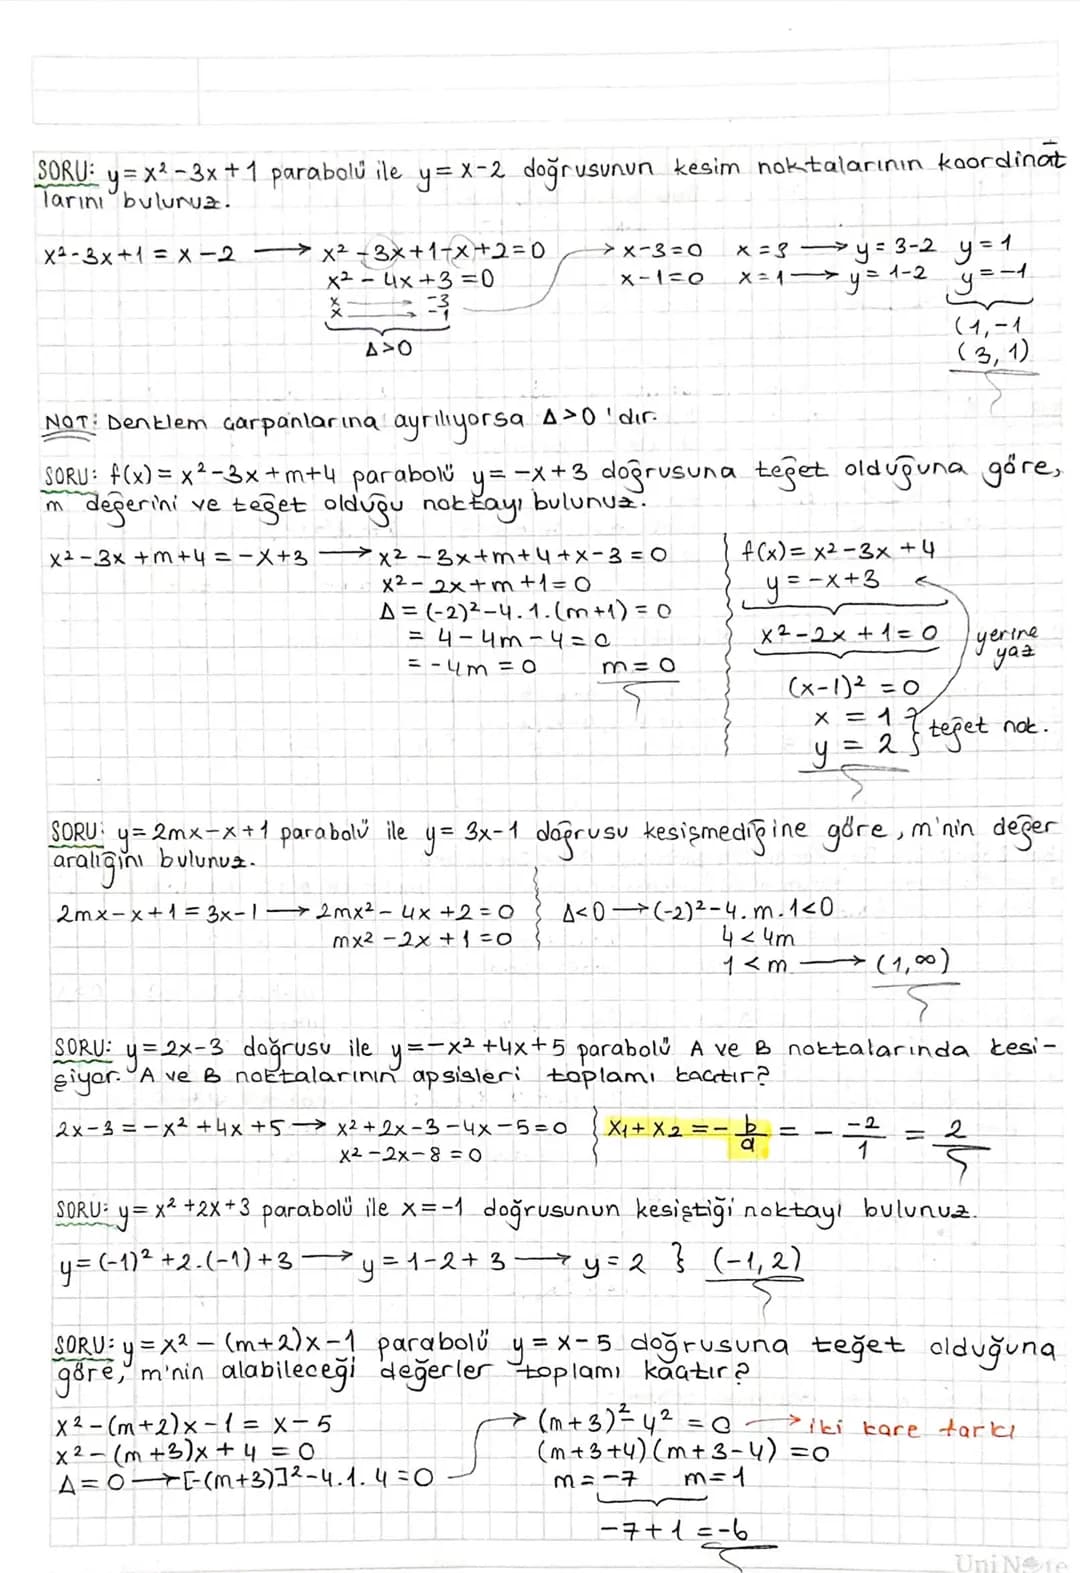 SORU: y = x² - 3x + 1 parabolü ile y = x - 2 doğrusunun kesim noktalarının koordinat
larını bulunuz.
x² - 3x + 1 = x - 2 → x² - 3x + 1 - x + 2 = 0 → x - 3 = 0 x = 3 → y = 3 - 2 y = 1
x² - 4x + 3 = 0 x - 1 = 0 x = 1 → y = 1 - 2 y = -1
x → -3
x → -1
(1, -1
Δ > 0 (3, 1)
NOT: Denklem çarpanlarına ayrılıyorsa Δ > 0 'dır.
SORU: f(x) = x² - 3x + m + 4 parabolü y = -x + 3 doğrusuna teğet olduğuna göre,
m değerini ve teğet olduğu noktayı bulunuz.
x² - 3x + m + 4 = -x + 3 → x² - 3x + m + 4 + x - 3 = 0
x² - 2x + m + 1 = 0
Δ = (-2)² - 4.1.(m+1) = 0
= 4 - 4m - 4 = 0
= -4m = 0 m = 0
f(x) = x² - 3x + 4
y = -x + 3
x² - 2x + 1 = 0 yerine
yaz
(x-1)² = 0
x = 1 } teğet nok.
y = 2
SORU: y = 2mx - x + 1 parabolü ile y = 3x - 1 doğrusu kesişmediğine göre, m'nin değer
aralığını bulunuz.
2mx - x + 1 = 3x - 1 → 2mx² - 4x + 2 = 0 Δ < 0 → (-2)² - 4.m.1 < 0
mx² - 2x + 1 = 0 4 < 4m
1 < m → (1, ∞)
SORU: y = 2x - 3 doğrusu ile y = -x² + 4x + 5 parabolü A ve B noktalarında kesi-
şiyor. A ve B noktalarının apsisleri toplamı kaçtır?
2x - 3 = -x² + 4x + 5 → x² + 2x - 3 - 4x - 5 = 0 { x₁ + x₂ = - b/a = - -2/1 = 2
x² - 2x - 8 = 0
SORU: y = x² + 2x + 3 parabolü ile x = -1 doğrusunun kesiştiği noktayı bulunuz.
y = (-1)² + 2.(-1) + 3 → y = 1 - 2 + 3 → y = 2 } (-1, 2)
SORU: y = x² - (m+2)x - 1 parabolü y = x - 5 doğrusuna teğet olduğuna
göre, m'nin alabileceği değerler toplamı kaçtır?
x² - (m+2)x - 1 = x - 5 → (m+3)² - 4² = 0 → iki kare farkı
x² - (m+3)x + 4 = 0 (m+3+4)(m+3-4) = 0
Δ = 0 → [-(m+3)]² - 4.1.4 = 0 m = -7 m = 1
-7 + 1 = -6
UniNote